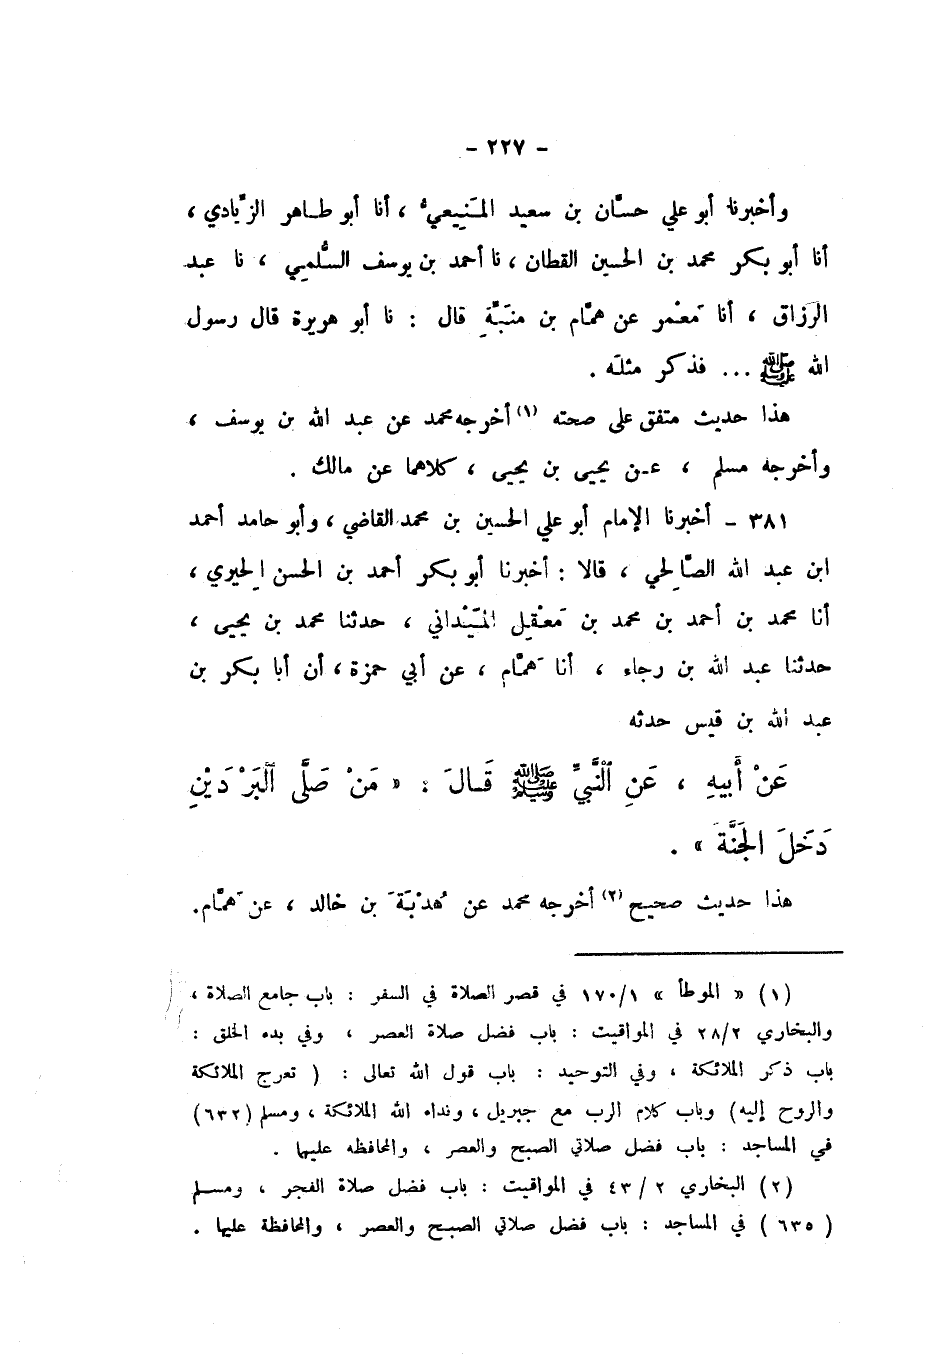 - ٢٢٧ -
وأخبرنا أبو علي حسَّان بن سعيد المَنِيعيُّ ، أنا أبو طاهر الزِّيادي ،
أنا أبو بكر محمد بن الحسين القطان ، نا أحمد بن يوسف السُّلمي ، نا عبد
الرزاق ، أنا مَعْمر عن همَّام بن منبِّه قال : نا أبو هريرة قال رسول
الله ﷺ ... فذكر مثله .
هذا حديث متفق على صحته (١) أخرجه محمد عن عبد الله بن يوسف ،
وأخرجه مسلم ، عن يحيى بن يحيى ، كلاهما عن مالك .
٣٨١ - أخبرنا الإمام أبو علي الحسين بن محمد القاضي ، وأبو حامد أحمد
ابن عبد الله الصَّالحي ، قالا : أخبرنا أبو بكر أحمد بن الحسن الحِيري ،
أنا محمد بن أحمد بن محمد بن مَعْقِل المَيْداني ، حدثنا محمد بن يحيى ،
حدثنا عبد الله بن رجاء ، أنا هَمَّام ، عن أبي حمزة ، أن أبا بكر بن
عبد الله بن قيس حدثه
عَنْ أَبيهِ ، عَنِ ٱلنَّبيِّ ﷺ قَالَ : « مَنْ صَلَّى ٱلبَرْدَيْنِ
دَخَلَ الجَنَّةَ » .
هذا حديث صحيح (٢) أخرجه محمد عن هُدْبَةَ بن خالد ، عن هَمَّام.
(١) « الموطأ » ١٧٠/١ في قصر الصلاة في السفر : باب جامع الصلاة ،
والبخاري ٢٨/٢ في المواقيت : باب فضل صلاة العصر ، وفي بدء الخلق :
باب ذكر الملائكة ، وفي التوحيد : باب قول الله تعالى : ( تعرج الملائكة
والروح إليه) وباب كلام الرب مع جبريل ، ونداء الله الملائكة ، ومسلم (٦٣٢)
في المساجد : باب فضل صلاتي الصبح والعصر ، والمحافظه عليها .
(٢) البخاري ٢ / ٤٣ في المواقيت : باب فضل صلاة الفجر ، ومسلم
( ٦٣٥ ) في المساجد : باب فضل صلاتي الصبح والعصر ، والمحافظة عليها .